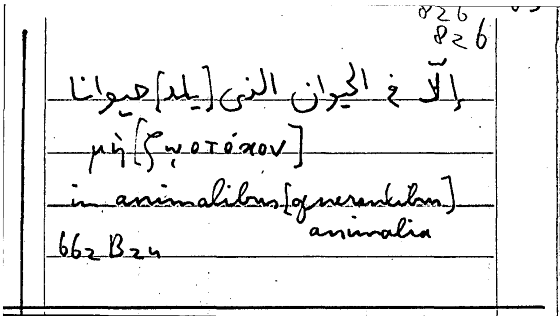 826
826
إلّا في الحيوان الذي [يلد] حيوانا
μὴ [ζῳοτόκον]
in animalibus [generantibus]
animalia
662 B24